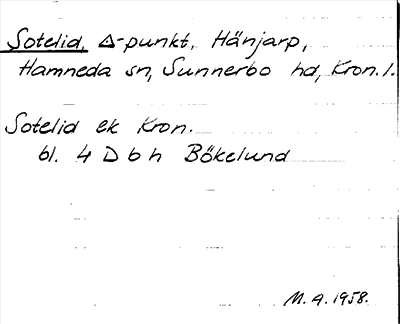 Sotelid, △-punkt, Hänjarp,
Hamneda sn, Sunnerbo hd, Kron. l.
Sotelid ek Kron.
bl. 4 D b h Bökelund
M. A. 1958.